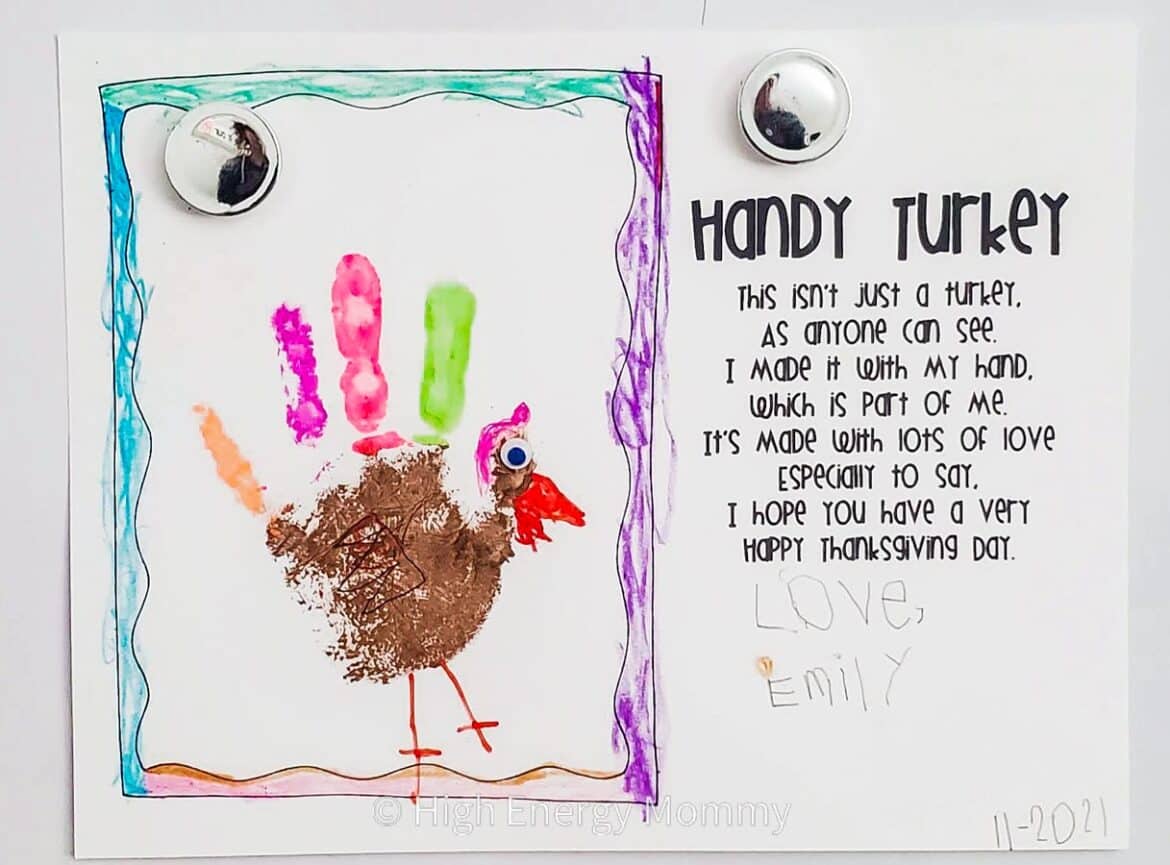 Handy Turkey
This isn't just a turkey,
As anyone can see.
I made it with my hand,
Which is part of me.
It's made with lots of love
Especially to say,
I hope you have a very
Happy Thanksgiving Day.
Love,
Emily
© High Energy Mommy
11-2021